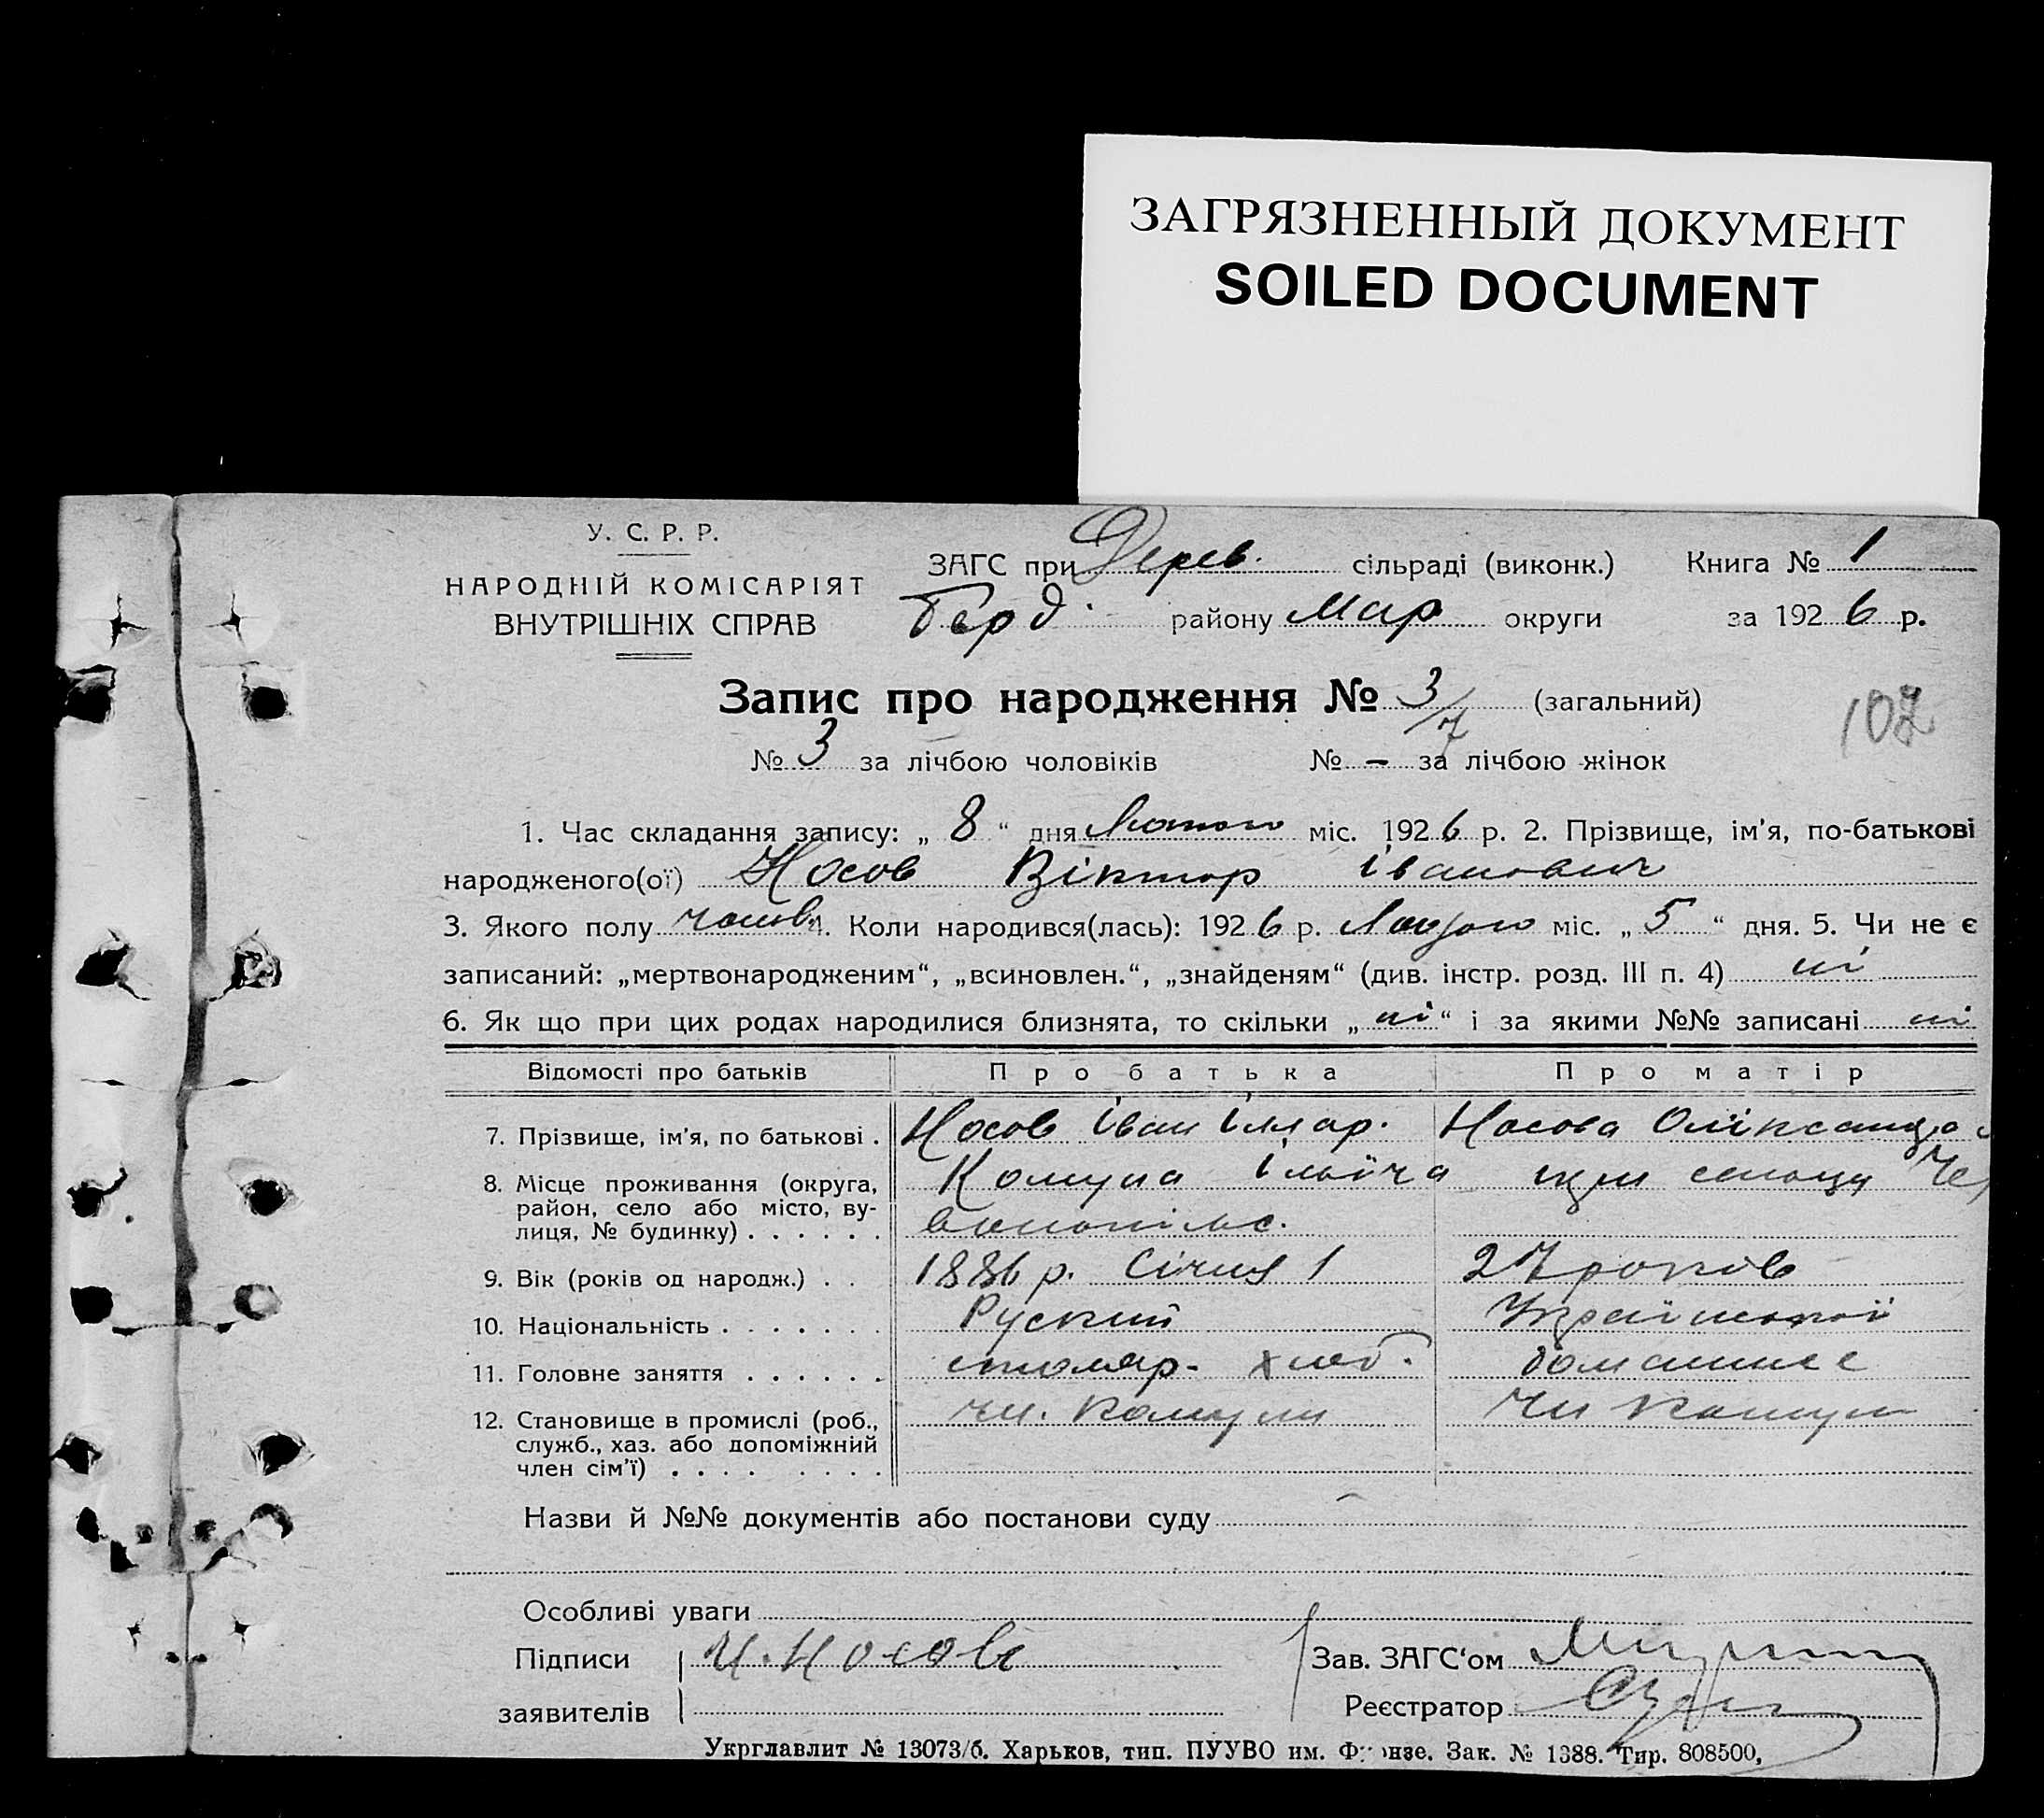 ЗАГРЯЗНЕННЫЙ ДОКУМЕНТ
SOILED DOCUMENT
У. С. Р. Р.
НАРОДНІЙ КОМІСАРІЯТ
ВНУТРІШНІХ СПРАВ
ЗАГС при Дерев. сільраді (виконк.) Книга № 1
Берд. району Мар округи за 1926 р.
Запис про народження № 3/7 (загальний)
107
№ 3 за лічбою чоловіків № - за лічбою жінок
1. Час складання запису: „ 8 “ дня Лютого міс. 1926 р. 2. Прізвище, ім'я, по-батькові
народженого(ої) Носов Віктор Іванович
3. Якого полу чолов. 4. Коли народився(лась): 1926 р. Лютого міс. „ 5 “ дня. 5. Чи не є
записаний: „мертвонародженим“, „всиновлен.“, „знайденям“ (див. інстр. розд. III п. 4) ні
6. Як що при цих родах народилися близнята, то скільки „ ні “ і за якими №№ записані ні
Відомості про батьків Про батька Про матір
7. Прізвище, ім'я, по батькові . Носов Іван Ілляр. Носова Олександра
8. Місце проживання (округа, район, село або місто, вулиця, № будинку) . . . . . . Комуна Ілліча
9. Вік (років од народж.) . . 1886 р. Січня 1 27 років
10. Національність . . . . . . . Руский Української
11. Головне заняття . . . . . . столяр. хліб. домашнє
12. Становище в промислі (роб., служб., хаз. або допоміжний член сім'ї) . . . . . . . . чл. комуни Чл комуни
Назви й №№ документів або постанови суду
Особливі уваги
Підписи И. Носов Зав. ЗАГС‘ом
заявителів Реєстратор
Укрглавлит № 13073/б. Харьков, тип. ПУУВО им. Фрунзе. Зак. № 1388. Тир. 808500,